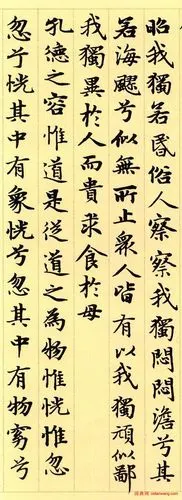 昭我獨若昏俗人察察我獨悶悶澹兮其
若海飂兮似無所止衆人皆有以我獨頑似鄙
我獨異於人而貴求食於母
孔德之容惟道是從道之為物惟恍惟忽
忽兮恍其中有象恍兮忽其中有物窈兮
词典网 cidianwang.com